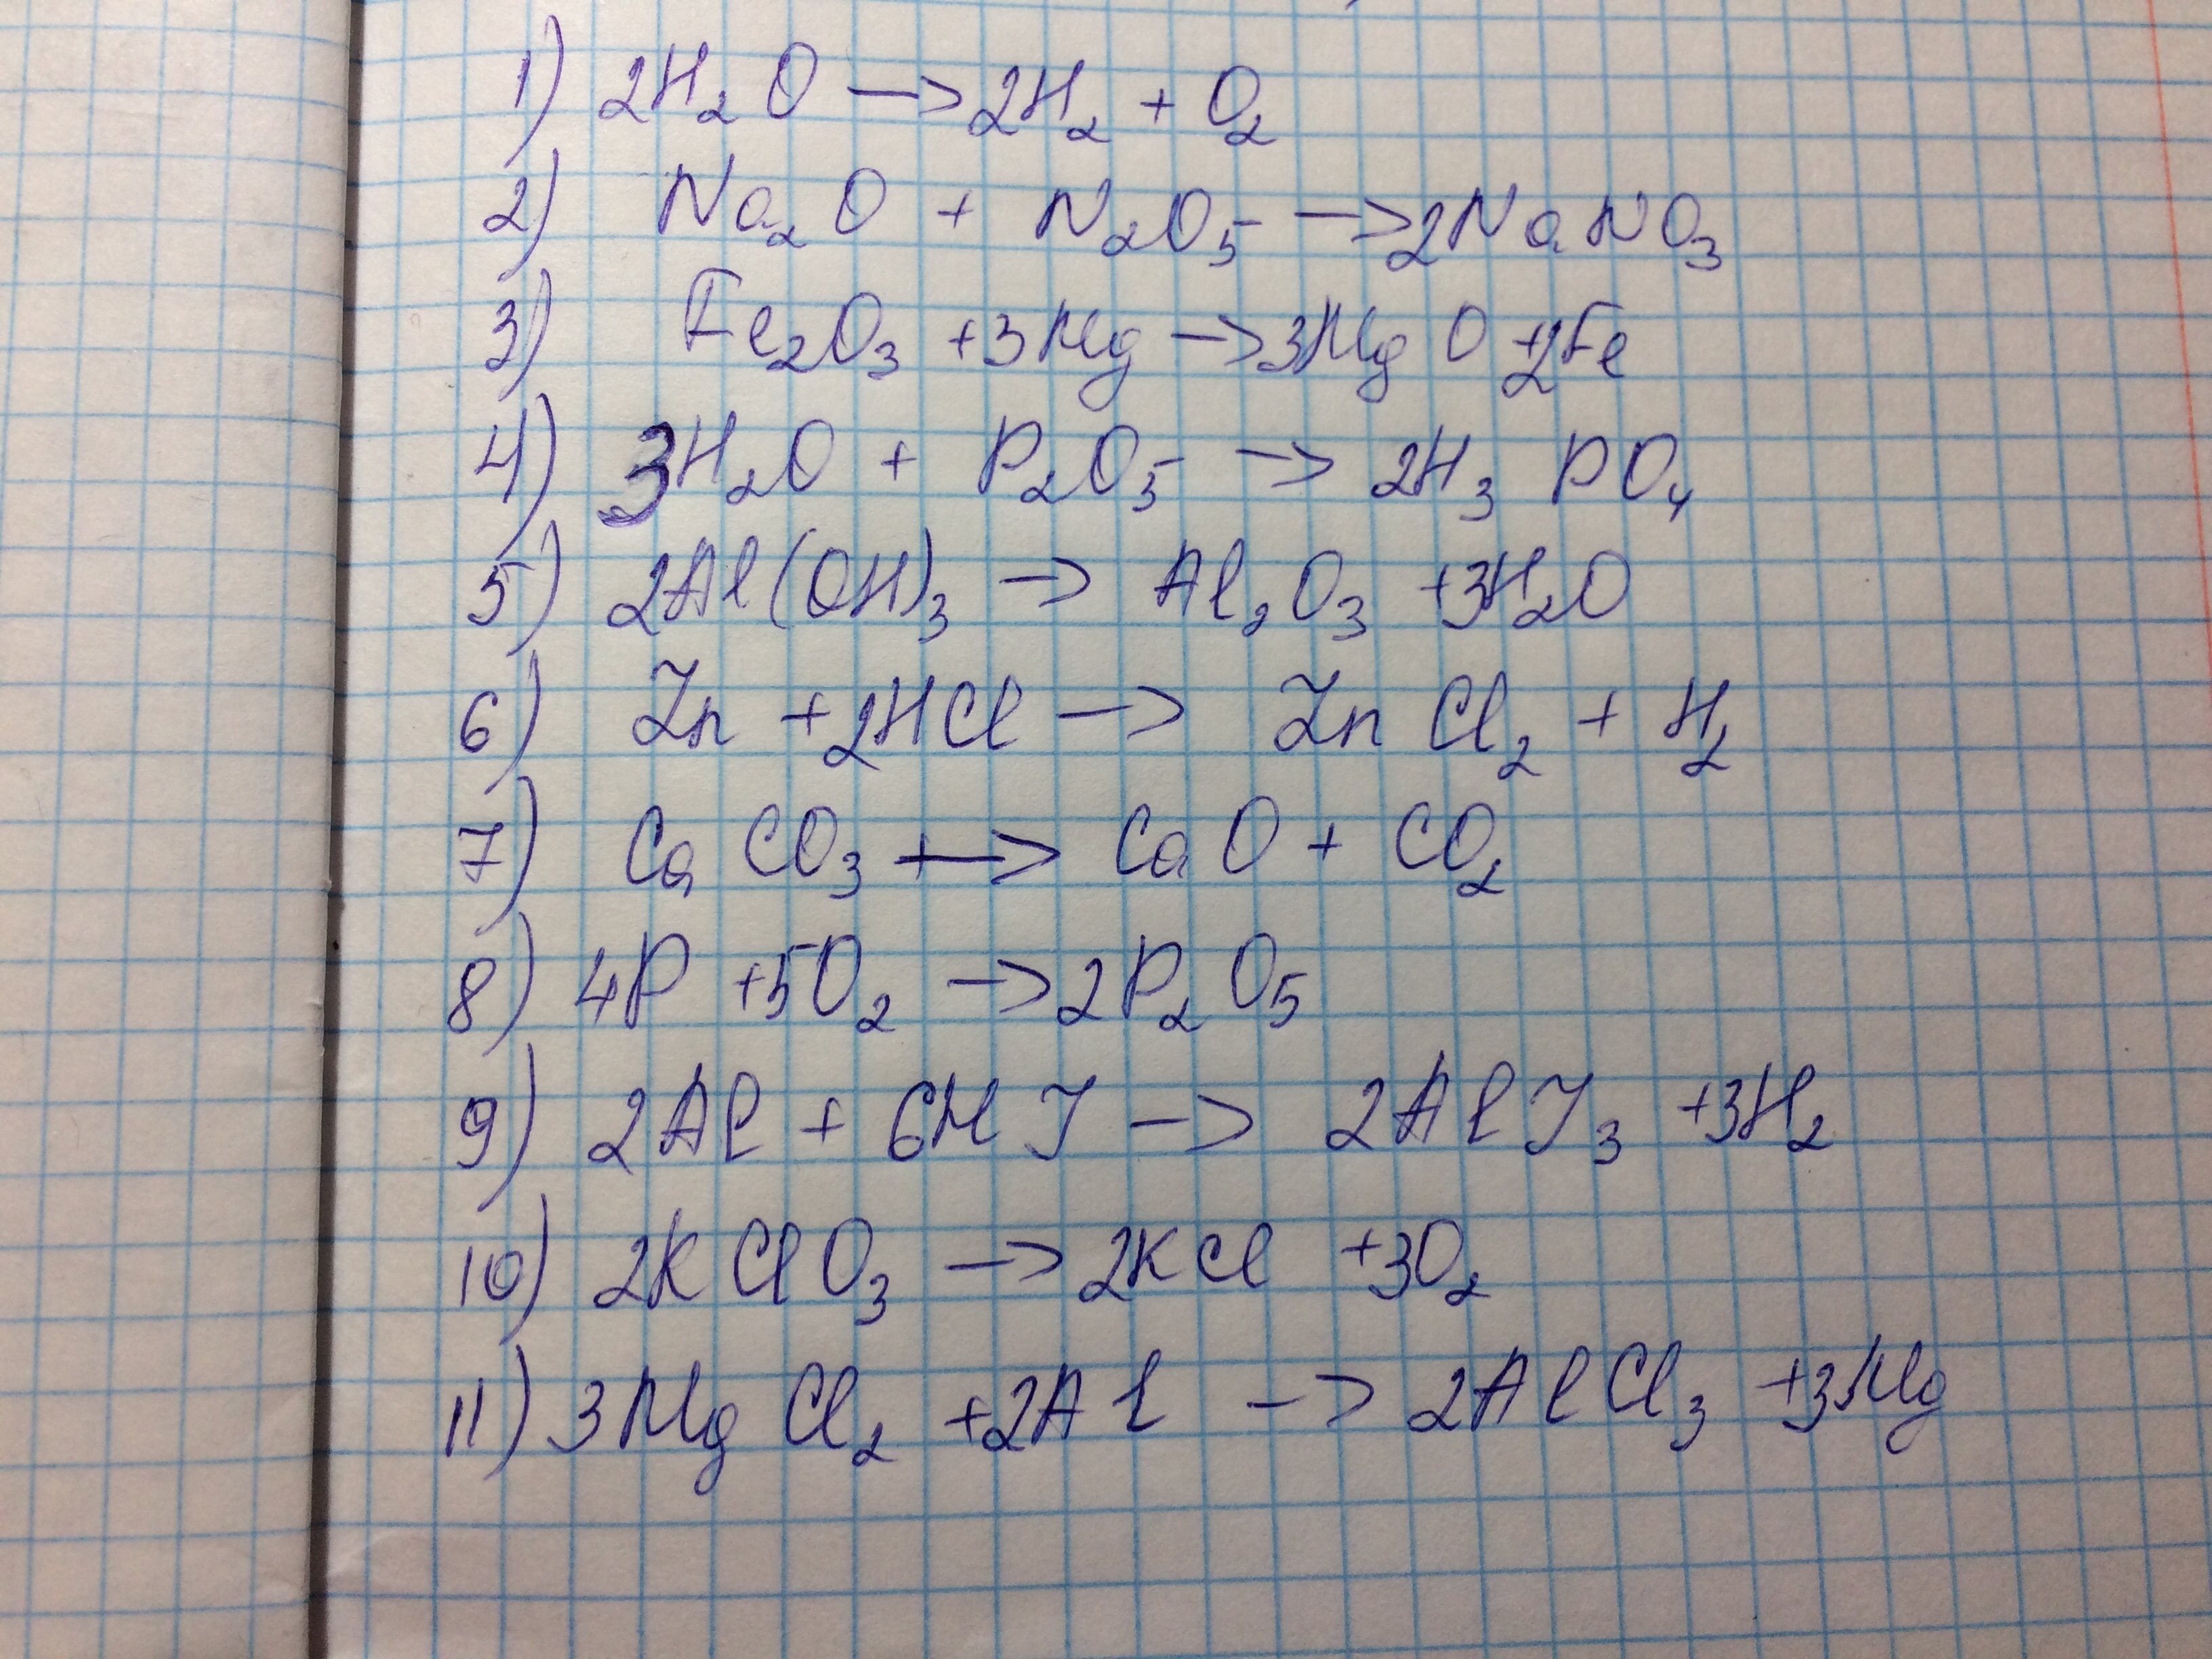 1) 2H₂O → 2H₂ + O₂
2) Na₂O + N₂O₅ → 2NaNO₃
3) Fe₂O₃ + 3Mg → 3MgO + 2Fe
4) 3H₂O + P₂O₅ → 2H₃PO₄
5) 2Al(OH)₃ → Al₂O₃ + 3H₂O
6) Zn + 2HCl → ZnCl₂ + H₂
7) CaCO₃ +→ CaO + CO₂
8) 4P + 5O₂ → 2P₂O₅
9) 2Al + 6HJ → 2AlJ₃ + 3H₂
10) 2KClO₃ → 2KCl + 3O₂
11) 3MgCl₂ + 2Al → 2AlCl₃ + 3Mg